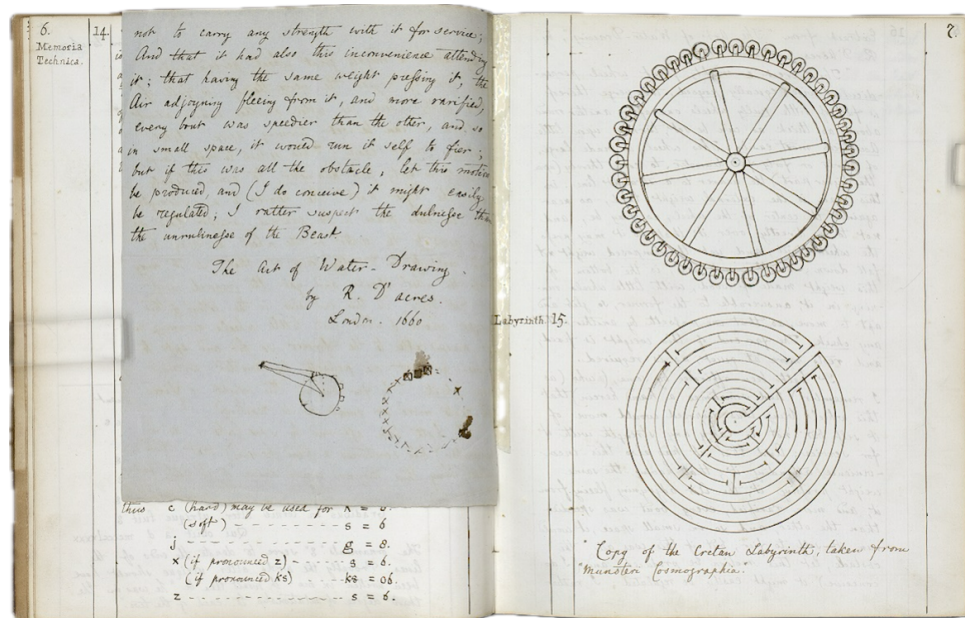 6.
Memoria
Technica.
14.
not to carry any strength with it for service;
And that it had also this inconvenience attending
it; that having the same weight pressing it, the
Air adjoyning fleeing from it, and more rarified,
every bout was speedier than the other, and so
in small space, it would run it self to fier;
but if this was all the obstacle, let this motion
be produced, and (I do conceive) it might easily
be regulated; I rather suspect the dulnesse than
the unrulinesse of the Beast
The Art of Water-Drawing
by R. D'acres.
London. 1660
thus c (hard) may be used for K = 8.
(soft) - - - - - - - - - s = 6
j - - - - - - - - - - - - g = 8.
x (if pronounced z) - - - - s = 6.
(if pronounced ks) - - - - ks = 06.
z - - - - - - - - - - - - s = 6.
7
Labyrinth 15.
"Copy of the Cretan Labyrinth, taken from
"Munsteri Cosmographia".